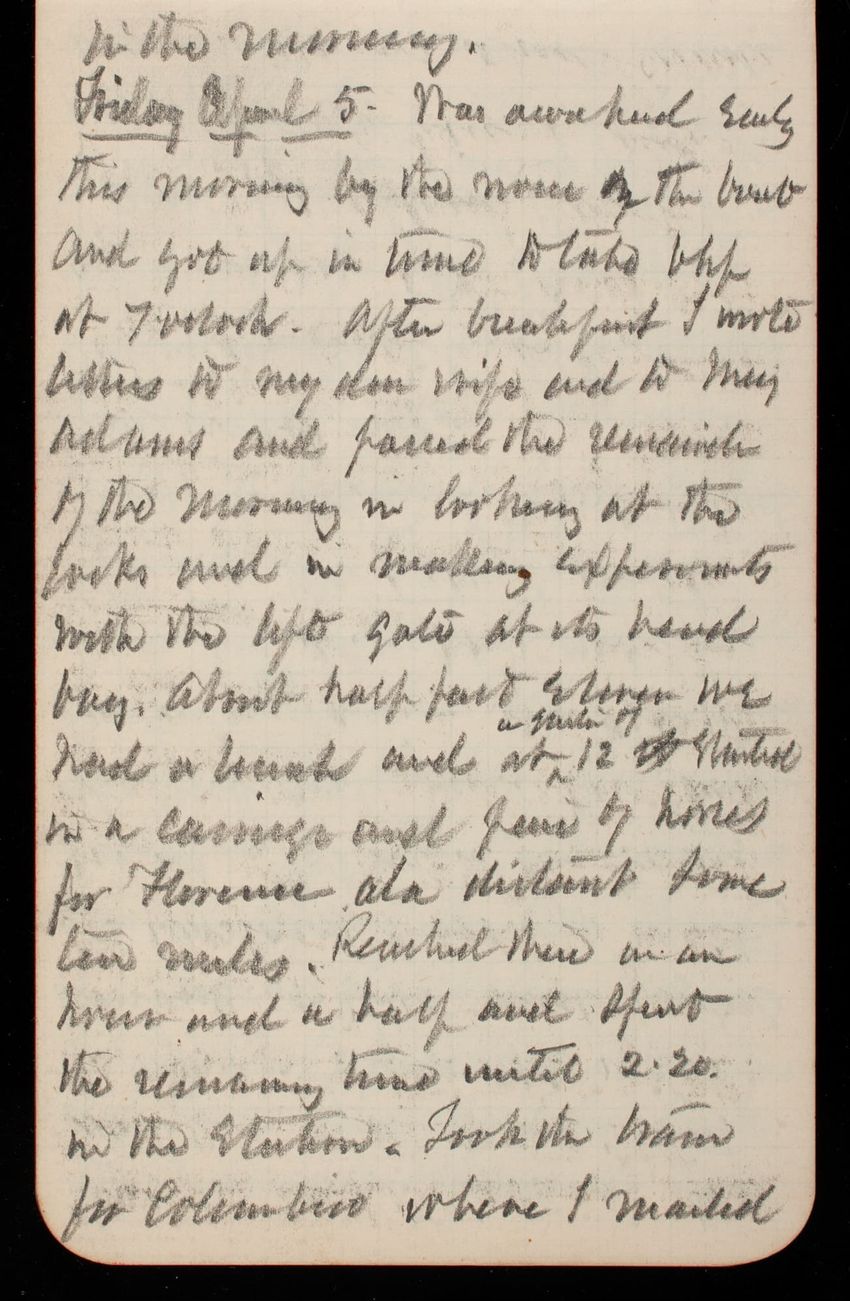 in the morning.
Friday April 5. Was awakened early
this morning by the noise of the boat
and got up in time to take bkf
at 7 oclock. After breakfast I wrote
letters to my dear wife and to May
Adams and passed the remainder
of the morning in looking at the
locks and in making experiments
with the lift gate at its head
bay. About half past eleven we
a quarter of
had a lunch and at 12 started
in a carriage and pair of horses
for Florence ala distant some
ten miles. Reached there in an
hour and a half and spent
the remaining time until 2.20.
in the Station. Took the train
for Columbus where I mailed